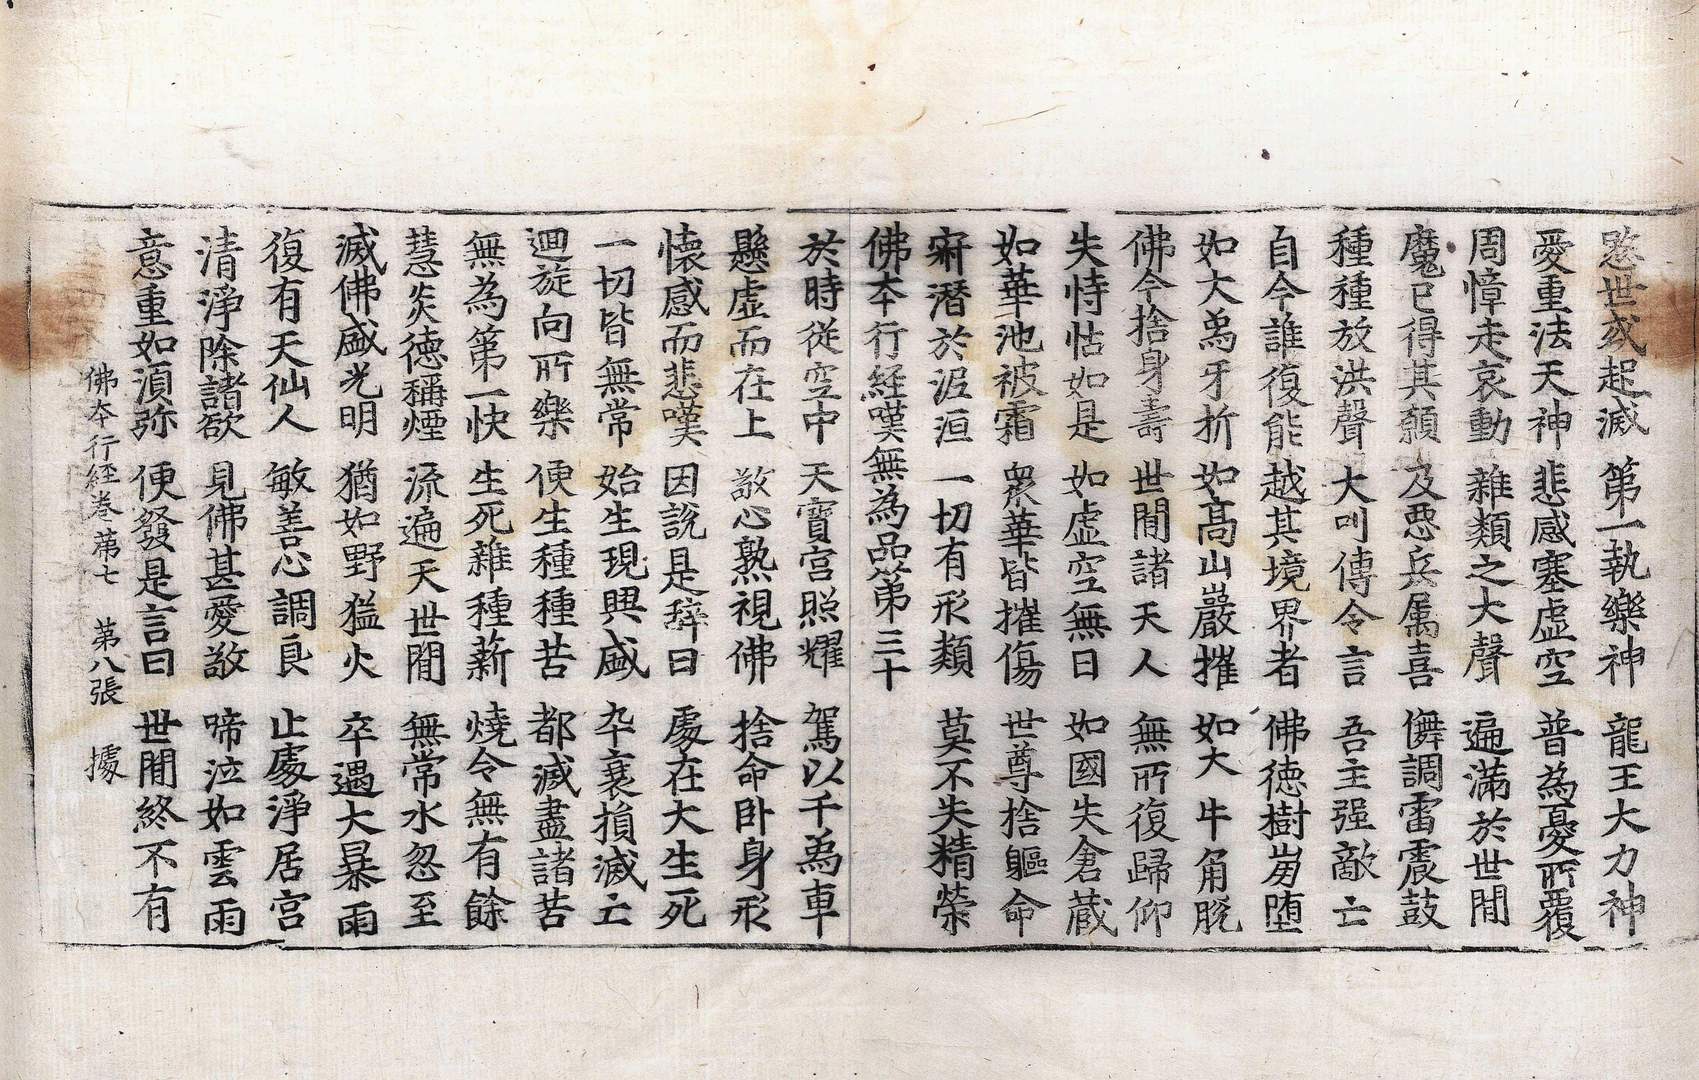 愍世或起滅 第一執樂神 龍王大力神
愛重法天神 悲感塞虛空 普為憂所覆
周慞走哀動 雜類之大聲 遍滿於世閒
魔已得其願 及惡兵属喜 儛調雷震鼓
種種放洪聲 大叫傳令言 吾主强敵亡
自今誰復能 越其境界者 佛德樹崩墮
如大為牙折 如髙山巖摧 如大牛角脫
佛今捨身壽 世閒諸天人 無所復歸仰
失恃怙如是 如虛空無日 如國失倉蔵
如華池被霜 衆華皆摧傷 世尊捨軀命
寂潜於泥洹 一切有形類 莫不失精榮
佛本行経嘆無為品第三十
於時從空中 天寶宮照耀 駕以千為車
懸虛而在上 敬心熟視佛 捨命卧身形
懷感而悲嘆 因說是辝曰 處在大生死
一切皆無常 始生現興盛 卒衰損滅亡
迴旋向所樂 便生種種苦 都滅盡諸苦
無為第一快 生死雜種薪 燒令無有餘
慧炎德稱煙 流遍天世閒 無常水忽至
滅佛盛光明 猶如野猛火 卒遇大暴雨
復有天仙人 敏善心調良 止處淨居宮
清淨除諸欲 見佛甚愛敬 啼泣如雲雨
意重如湏弥 便發是言曰 世閒終不有
佛本行経卷第七 第八張 據